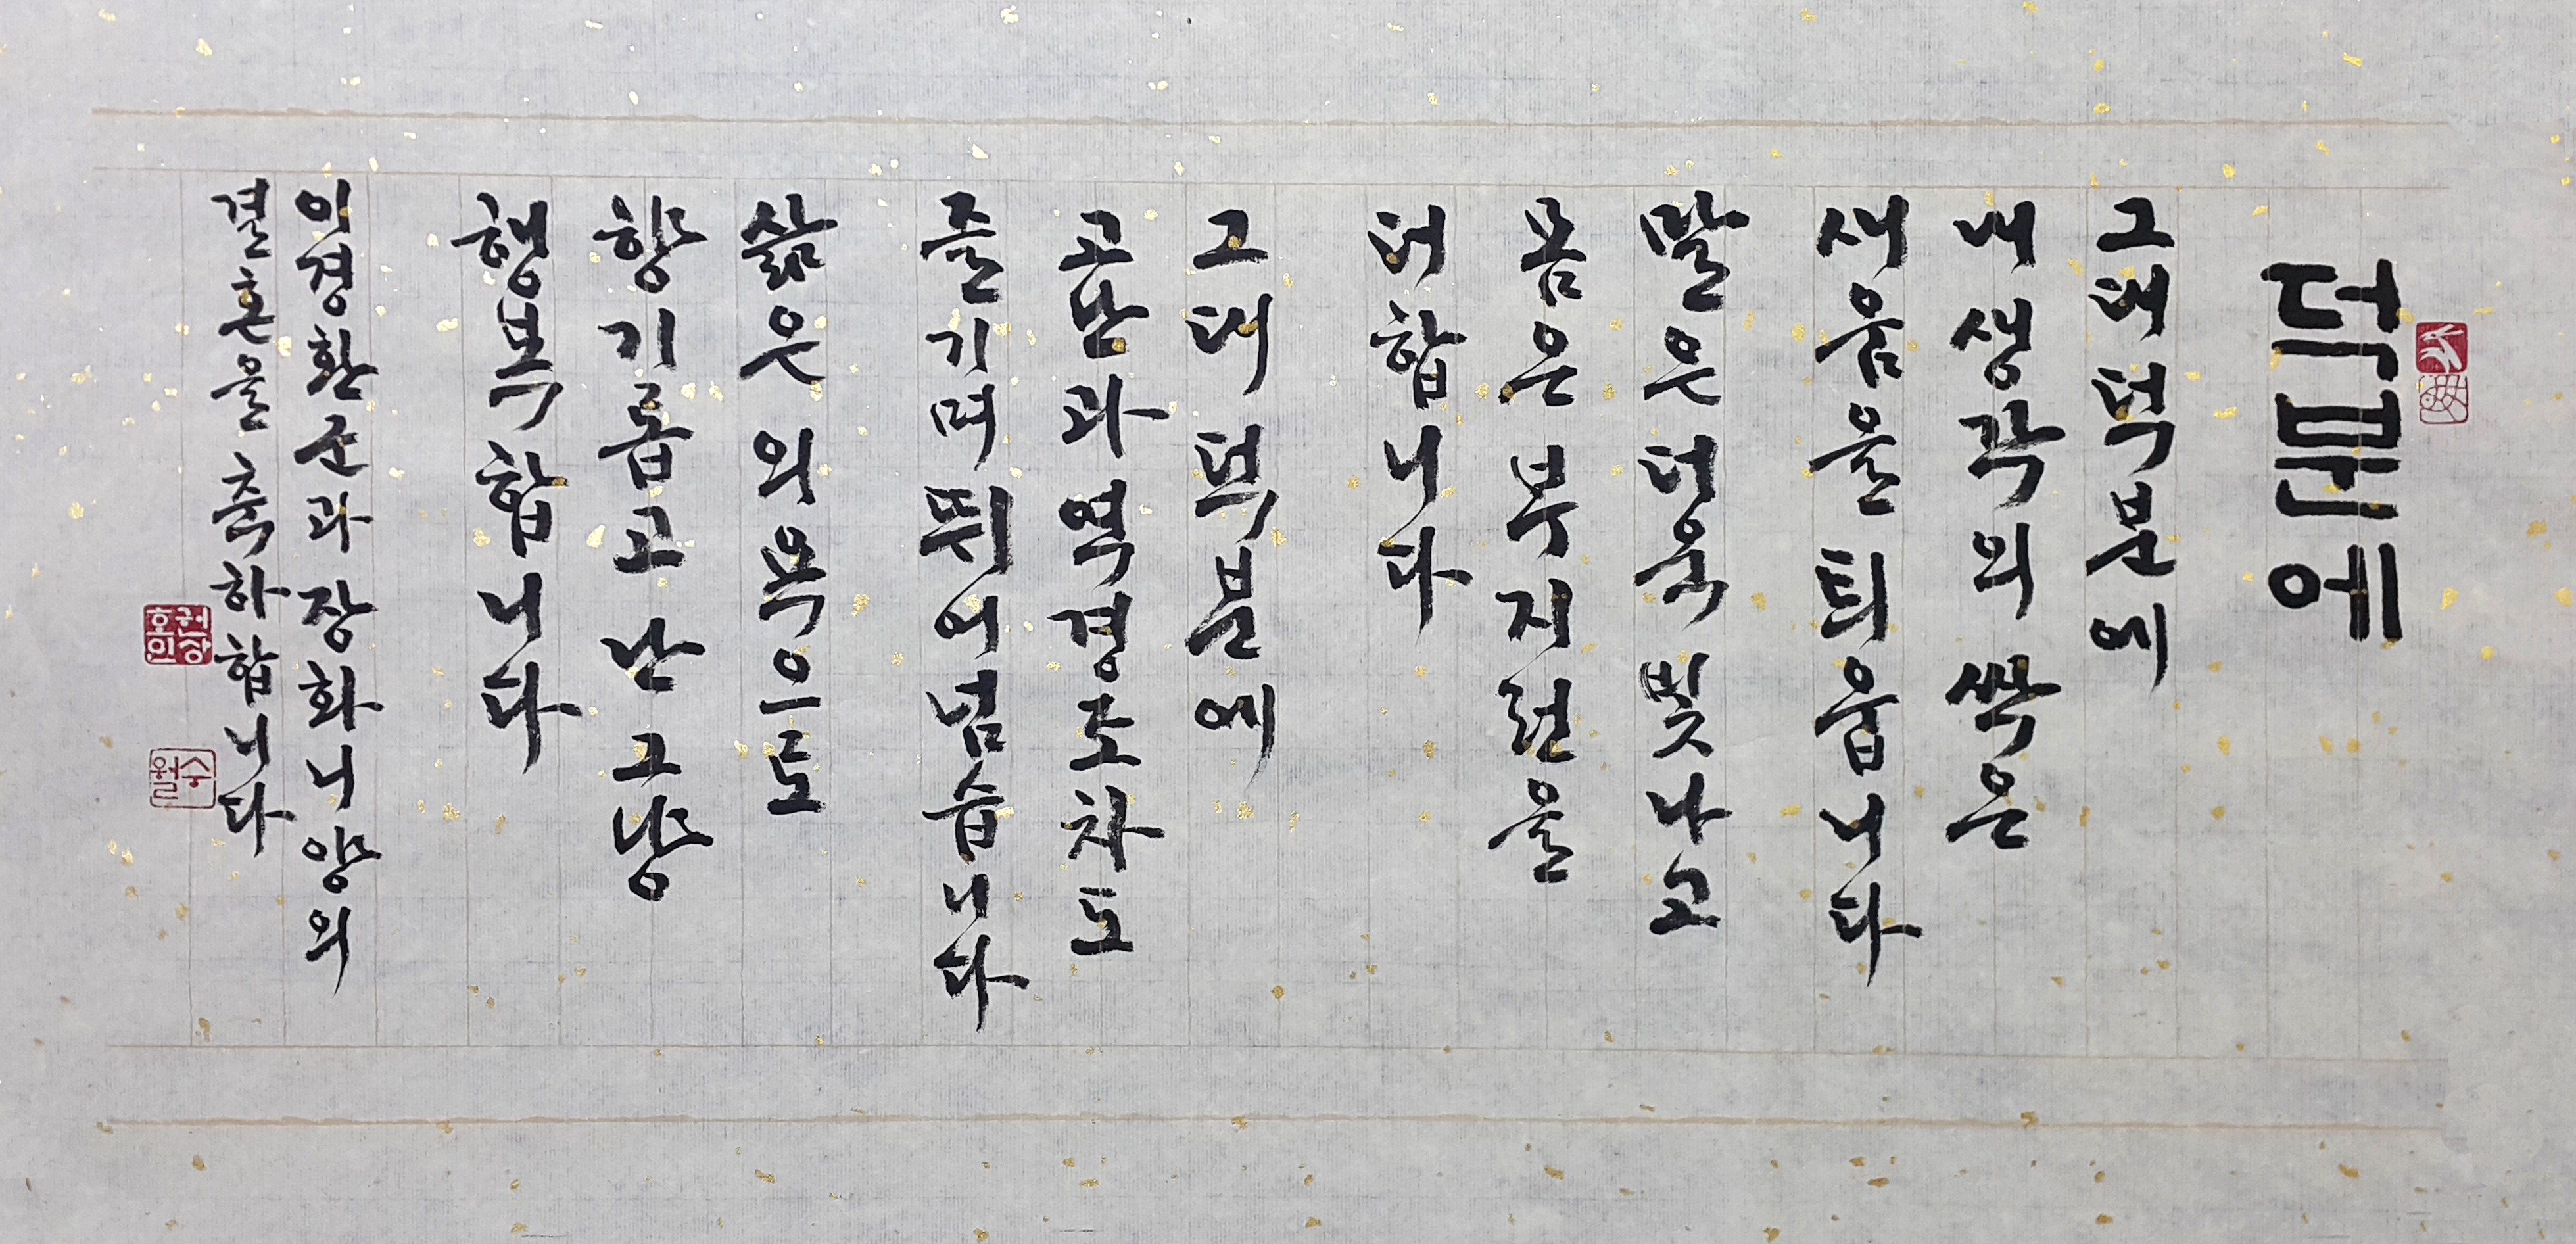 덕분에
그대 덕분에
내 생각의 싹은
새 움을 틔웁니다
말은 더욱 빛나고
몸은 부지런을
더합니다
그대 덕분에
고난과 역경조차도
즐기며 뛰어넘습니다
삶은 의욕으로
향기롭고 난 그냥
행복합니다
이경환군과 장화니양의
결혼을 축하합니다
권상
호인
수
월